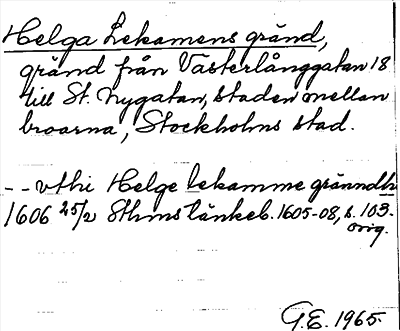 Helga Lekamens gränd,
gränd från Västerlånggatan 18
till St. Nygatan, staden mellan
broarna, Stockholms stad.
-- vthi Helge lekamme gränndh
1606 25/2 Sthms tänkeb. 1605-08, s. 103.
orig.
G.E. 1965.